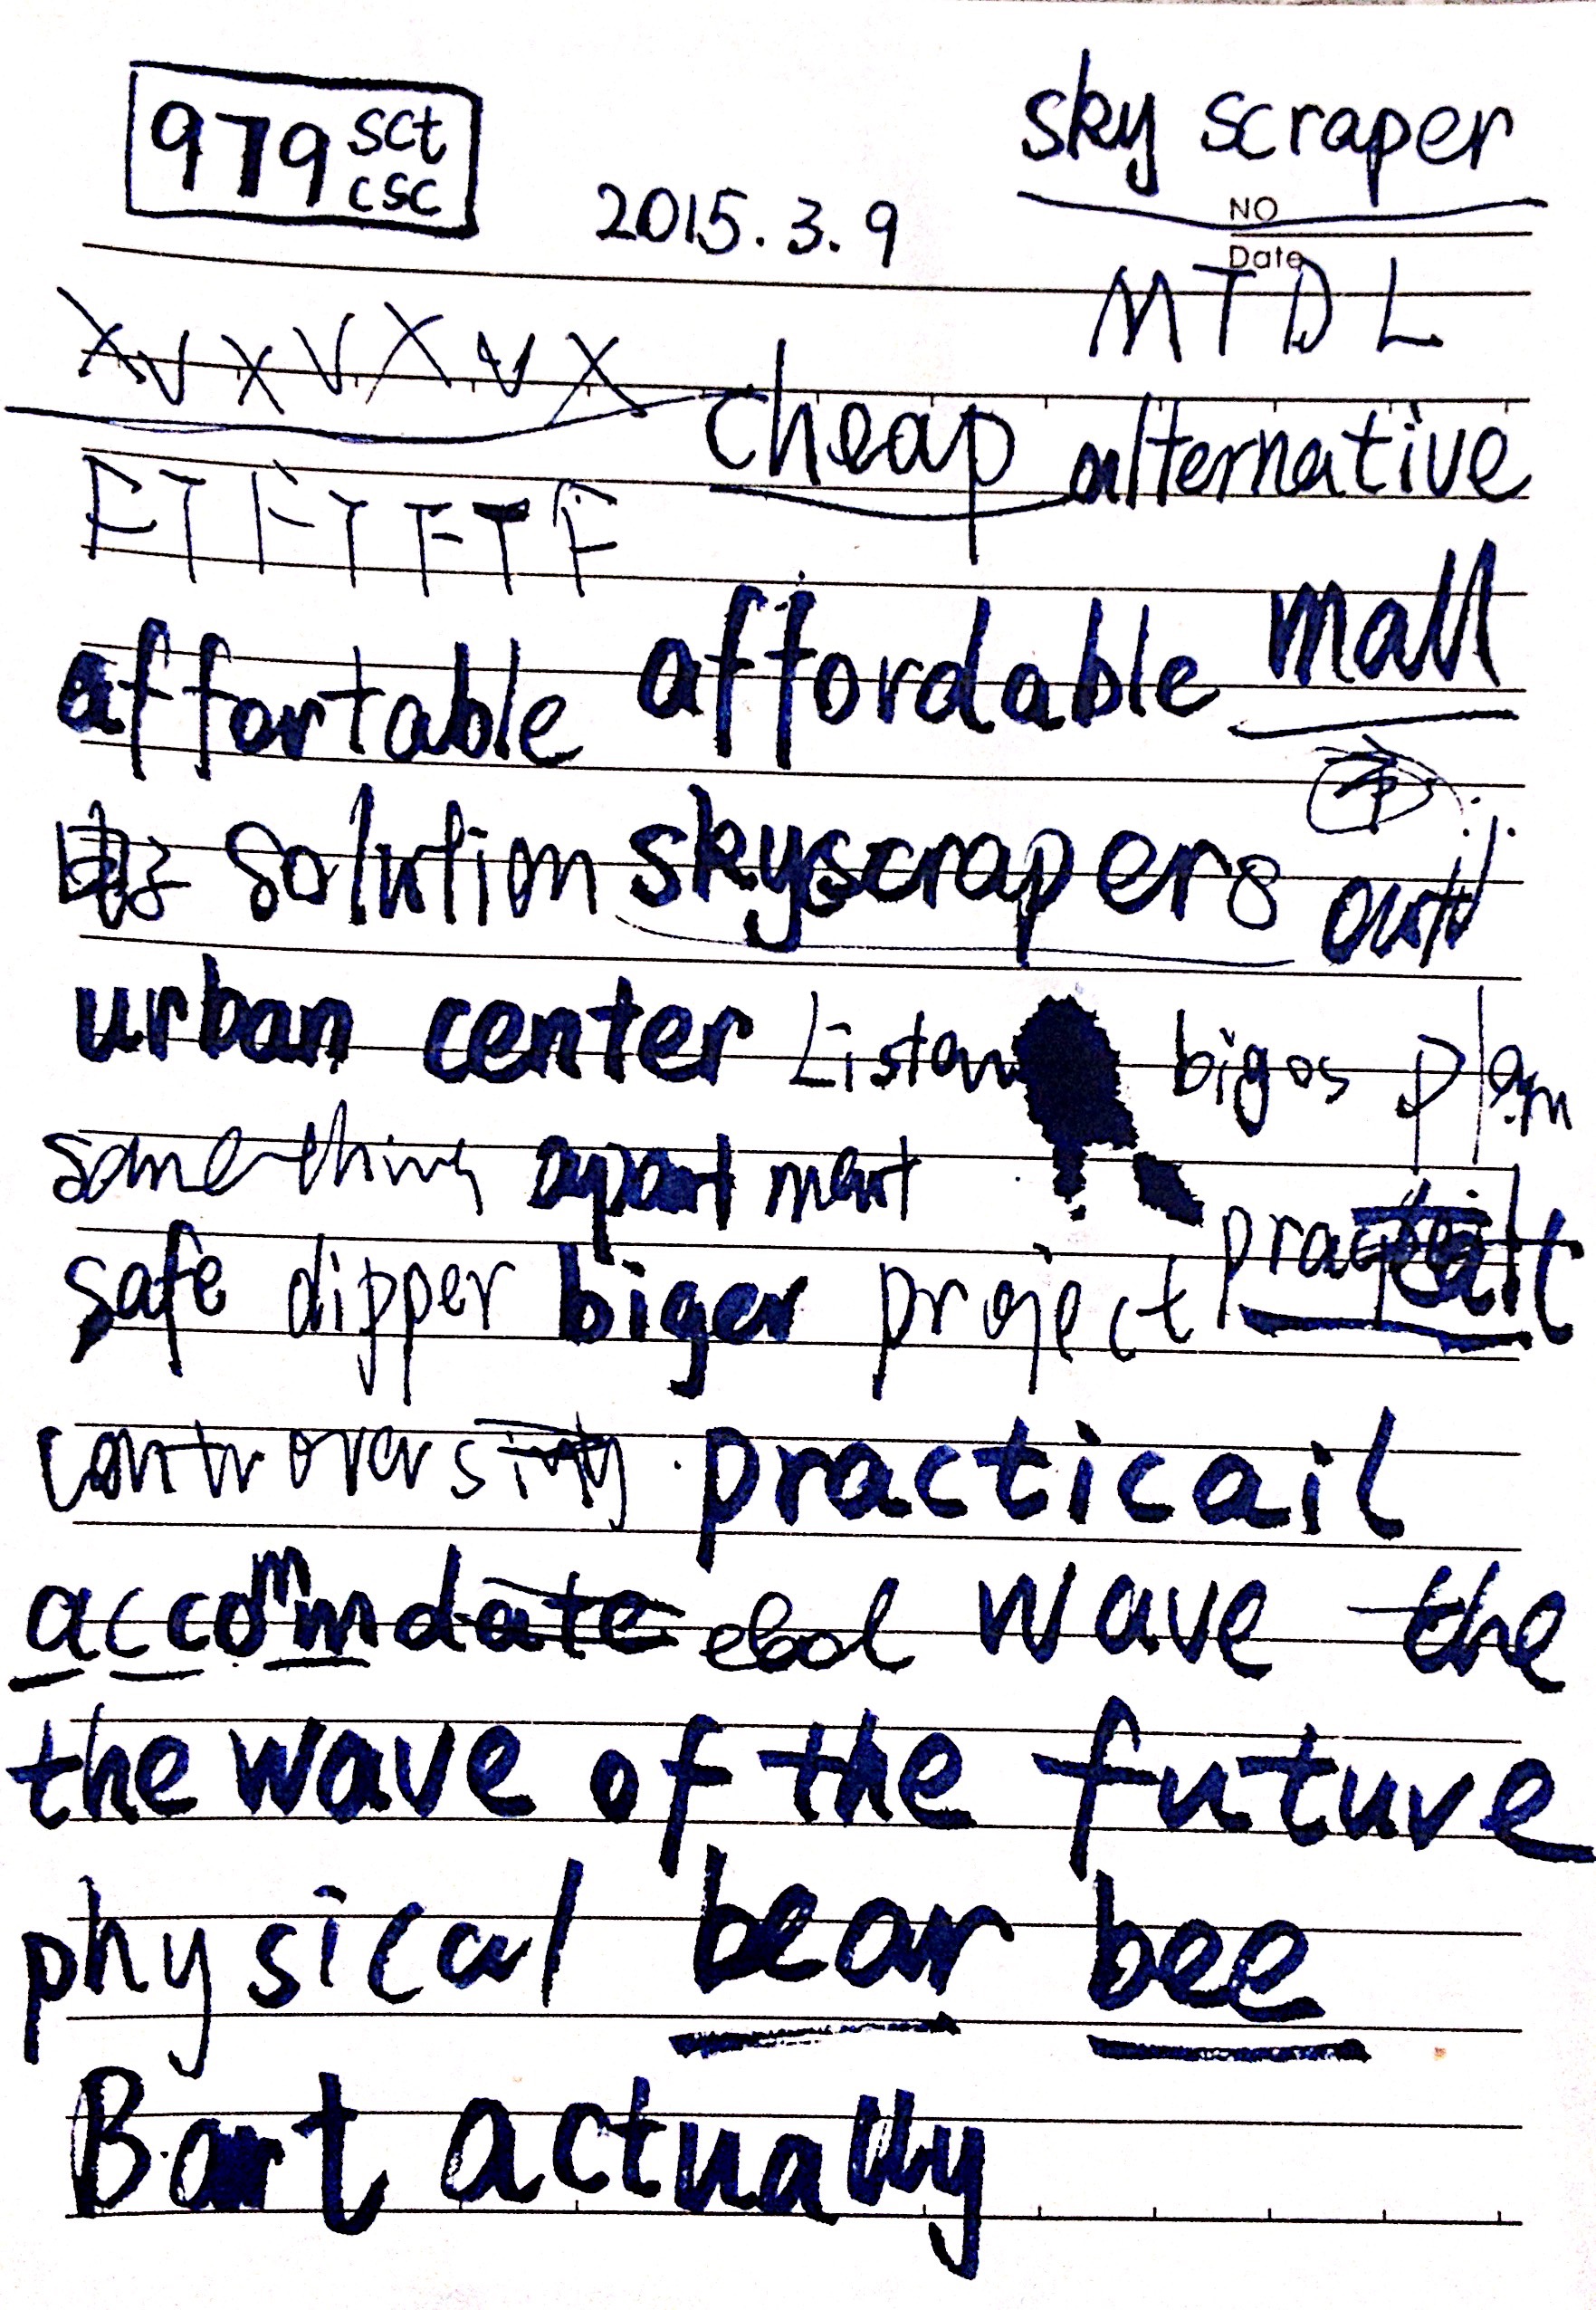 979 sct csc
sky scraper
2015.3.9
NO
Date
M T D L
X V X V X V X
cheap alternative
F T F T F T F
affortable affordable mall
solution skyscrapers
urban center Liston bigos plan
something apartment
safe dipper biger project
practicail
accommdate wave the
the wave of the future
physical bear bee
Bart actually